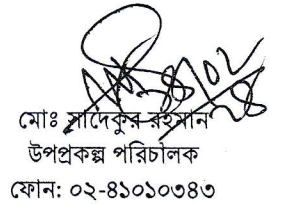 মোঃ সাদেকুর রহমান
উপপ্রকল্প পরিচালক
ফোন: ০২-৪১০১০৩৪৩